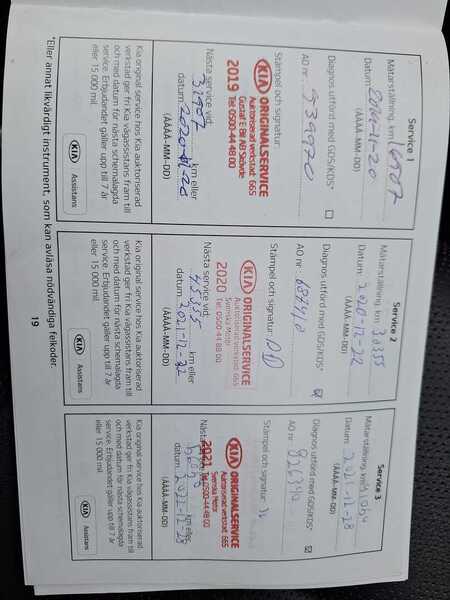 Service 1
Mätarställning, km
Datum: 2019-11-20
(ÅÅÅÅ-MM-DD)
Diagnos utförd med GDS/KDS*
AO nr:
Stämpel och signatur:
KIA ORIGINALSERVICE
Auktoriserad verkstad: 665
Gustaf E Bil AB Skövde
2019 Tel: 0500-44 48 00
Nästa service vid:
31907 km eller
datum: 2020-11-20
(ÅÅÅÅ-MM-DD)
Kia original service hos Kia auktoriserad
verkstad ger fri Kia vägassistans fram till
och med datum för nästa schemalagda
service. Erbjudandet gäller upp till 7 år
eller 15 000 mil.
KIA
Assistans
Service 2
Mätarställning, km 30355
Datum: 2020-12-22
(ÅÅÅÅ-MM-DD)
Diagnos utförd med GDS/KDS*
AO nr:
Stämpel och signatur:
KIA ORIGINALSERVICE
Auktoriserad verkstad: 665
Svenska Motor
2020 Tel: 0500-44 48 00
Nästa service vid:
45355 km eller
datum: 2021-12-22
(ÅÅÅÅ-MM-DD)
Kia original service hos Kia auktoriserad
verkstad ger fri Kia vägassistans fram till
och med datum för nästa schemalagda
service. Erbjudandet gäller upp till 7 år
eller 15 000 mil.
KIA
Assistans
Service 3
Mätarställning, km
Datum: 2021-12-28
(ÅÅÅÅ-MM-DD)
Diagnos utförd med GDS/KDS*
AO nr:
Stämpel och signatur:
KIA ORIGINALSERVICE
Auktoriserad verkstad: 665
Svenska Motor
2021 Tel: 0500-44 48 00
Nästa
km eller
datum: 2022-12-28
(ÅÅÅÅ-MM-DD)
Kia original service hos Kia auktoriserad
verkstad ger fri Kia vägassistans fram till
och med datum för nästa schemalagda
service. Erbjudandet gäller upp till 7 år
eller 15 000 mil.
KIA
Assistans
*Eller annat likvärdigt instrument, som kan avläsa nödvändiga felkoder.
19